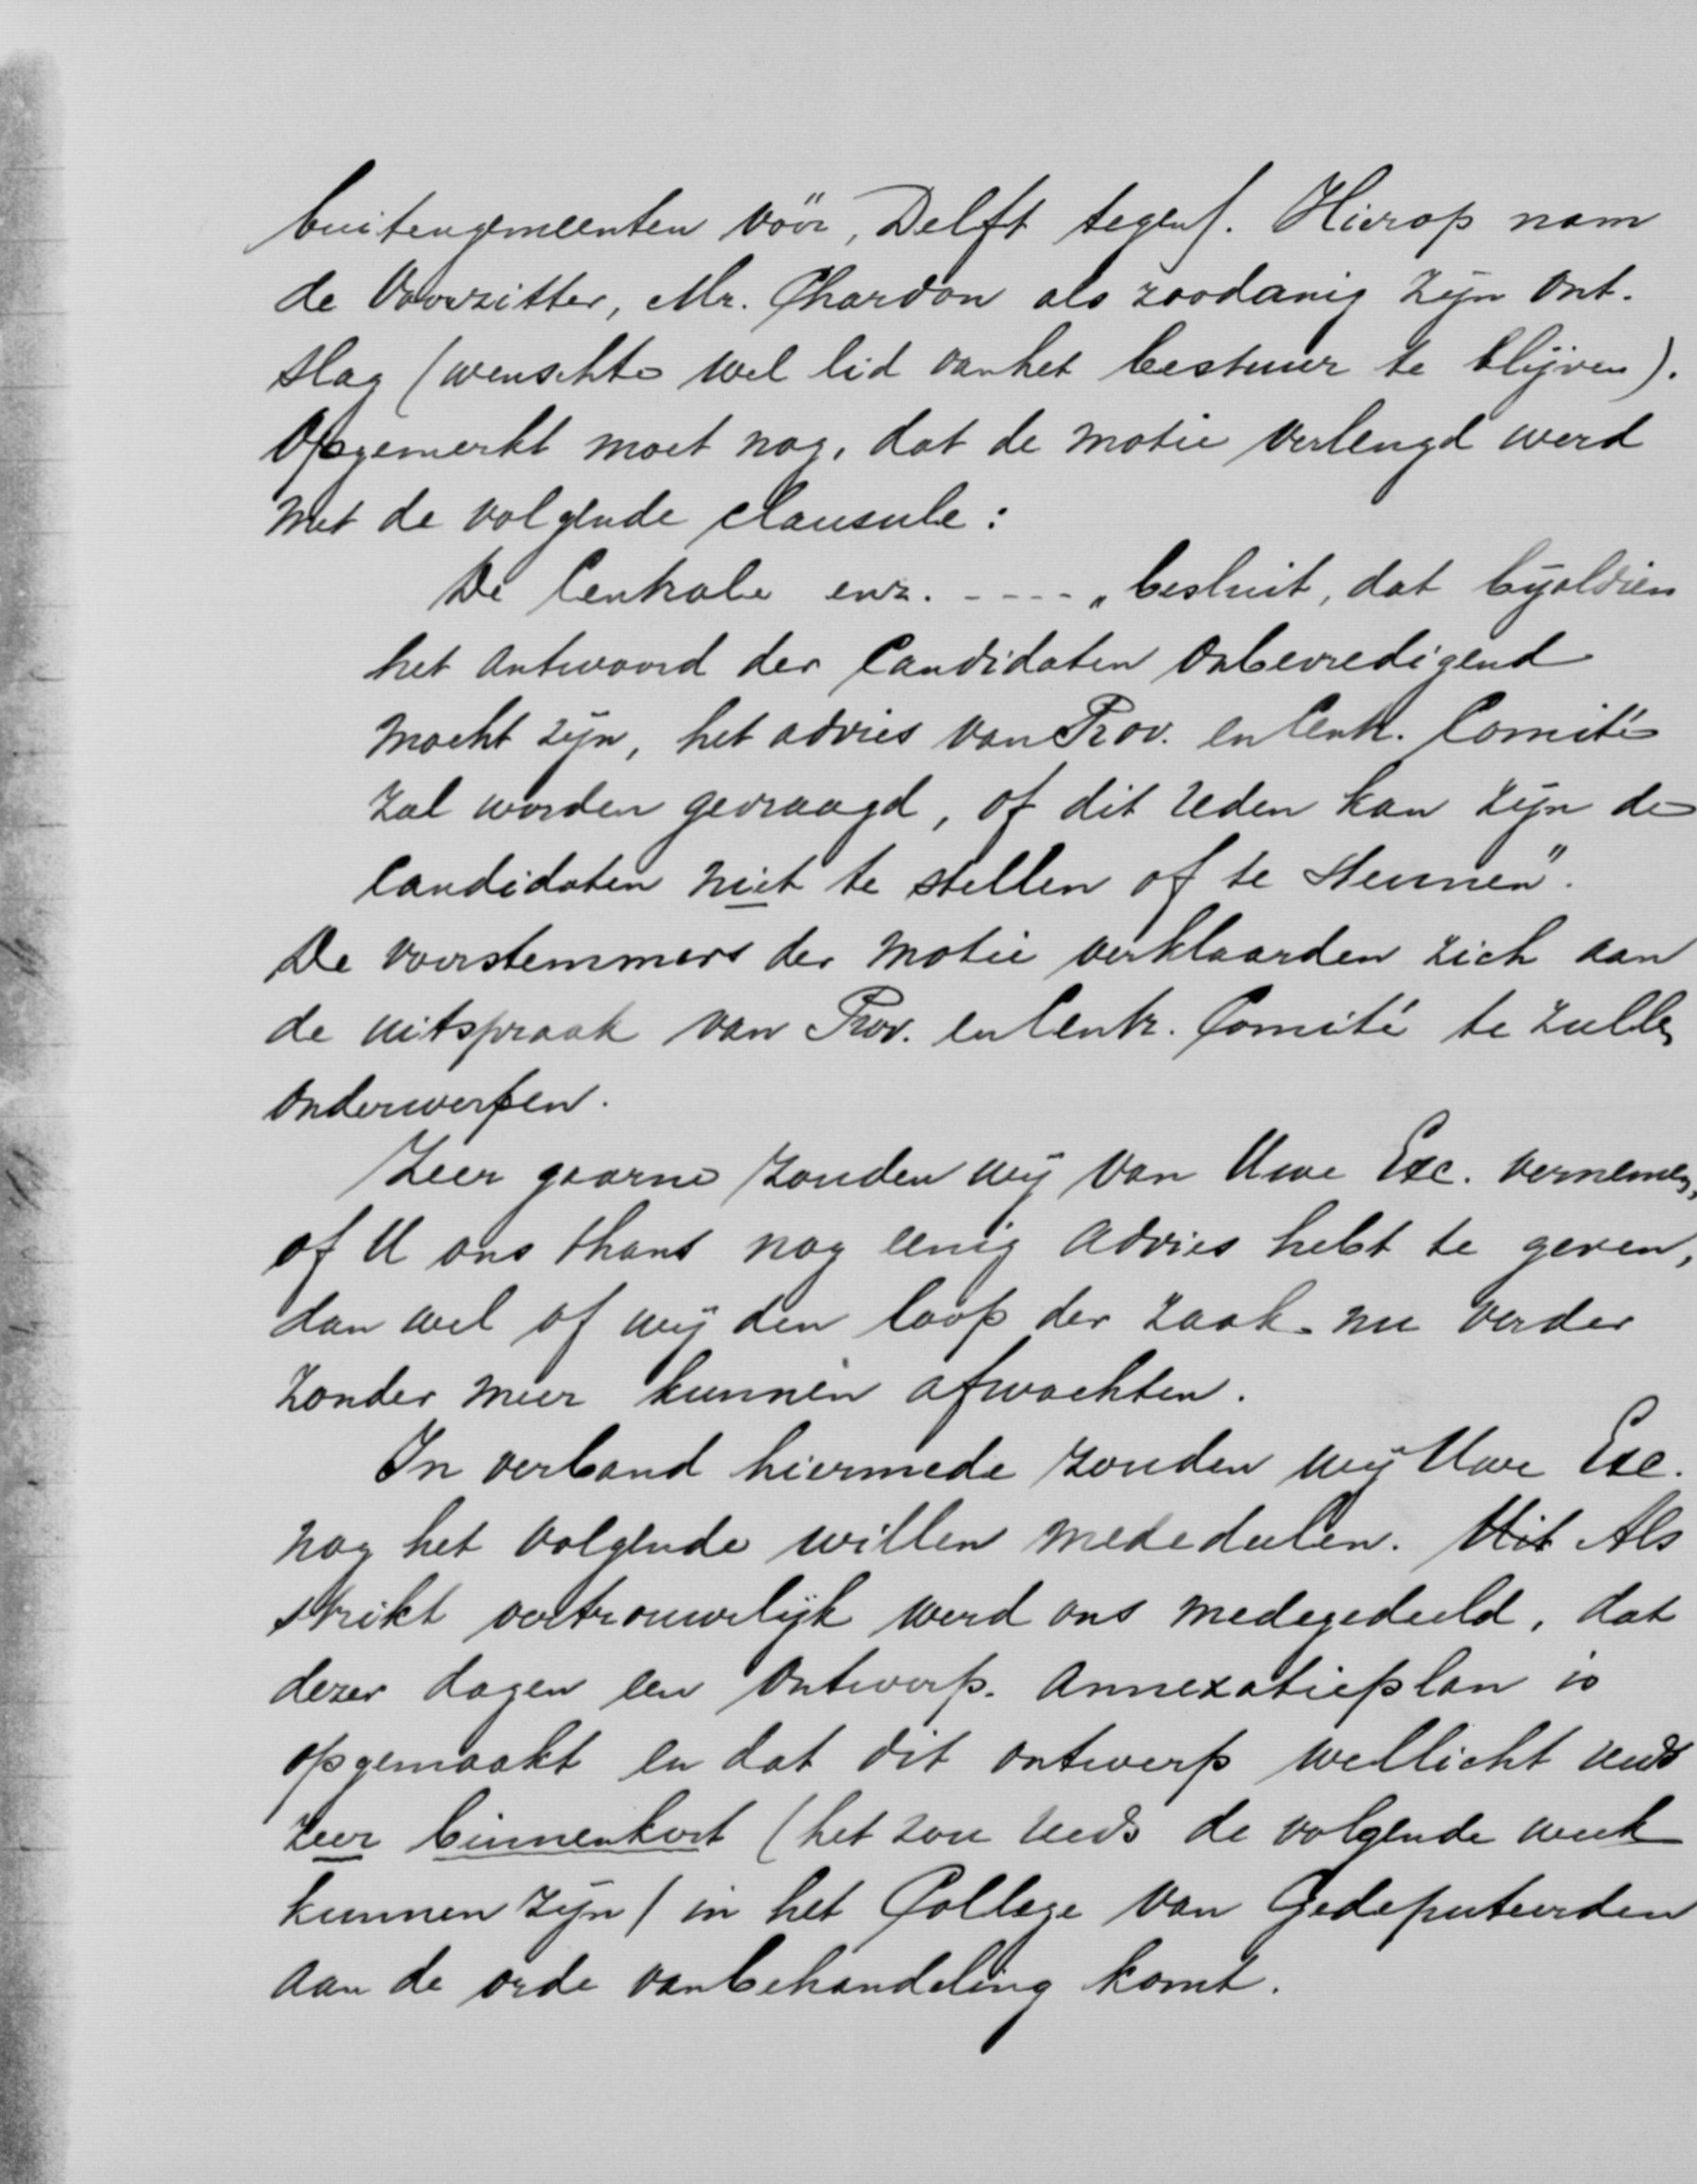 buitengemeenten vóór, Delft tegen). Hierop nam
de Voorzitter, Mr. Chardon als zoodanig zijn ont-
slag (wenschte wel lid van het bestuur te blijven).
Opgemerkt moet nog, dat de motie verlengd werd
met de volgende clausule:
De Centrale enz. ---- „besluit, dat bijaldien
het antwoord der Candidaten onbevredigend
mocht zijn, het advies van Prov. en Centr. Comité
zal worden gevraagd, of dit reden kan zijn de
Candidaten niet te stellen of te steunen".
De voorstemmers der motie verklaarden zich aan
de uitspraak van Prov. en Centr. Comité te zullen
onderwerpen.
Zeer gaarne zouden wij van Uwe Exc. vernemen,
of U ons thans nog eenig advies hebt te geven,
dan wel of wij den loop der zaak nu verder
zonder meer kunnen afwachten.
In verband hiermede zouden wij Uwe Exc.
nog het volgende willen mededeelen. Uit Als
strikt vertrouwelijk werd ons medegedeeld, dat
dezer dagen een ontwerp-annexatieplan is
opgemaakt en dat dit ontwerp wellicht reeds
zeer binnenkort (het zou reeds de volgende week
kunnen zijn) in het College van Gedeputeerden
aan de orde van behandeling komt.